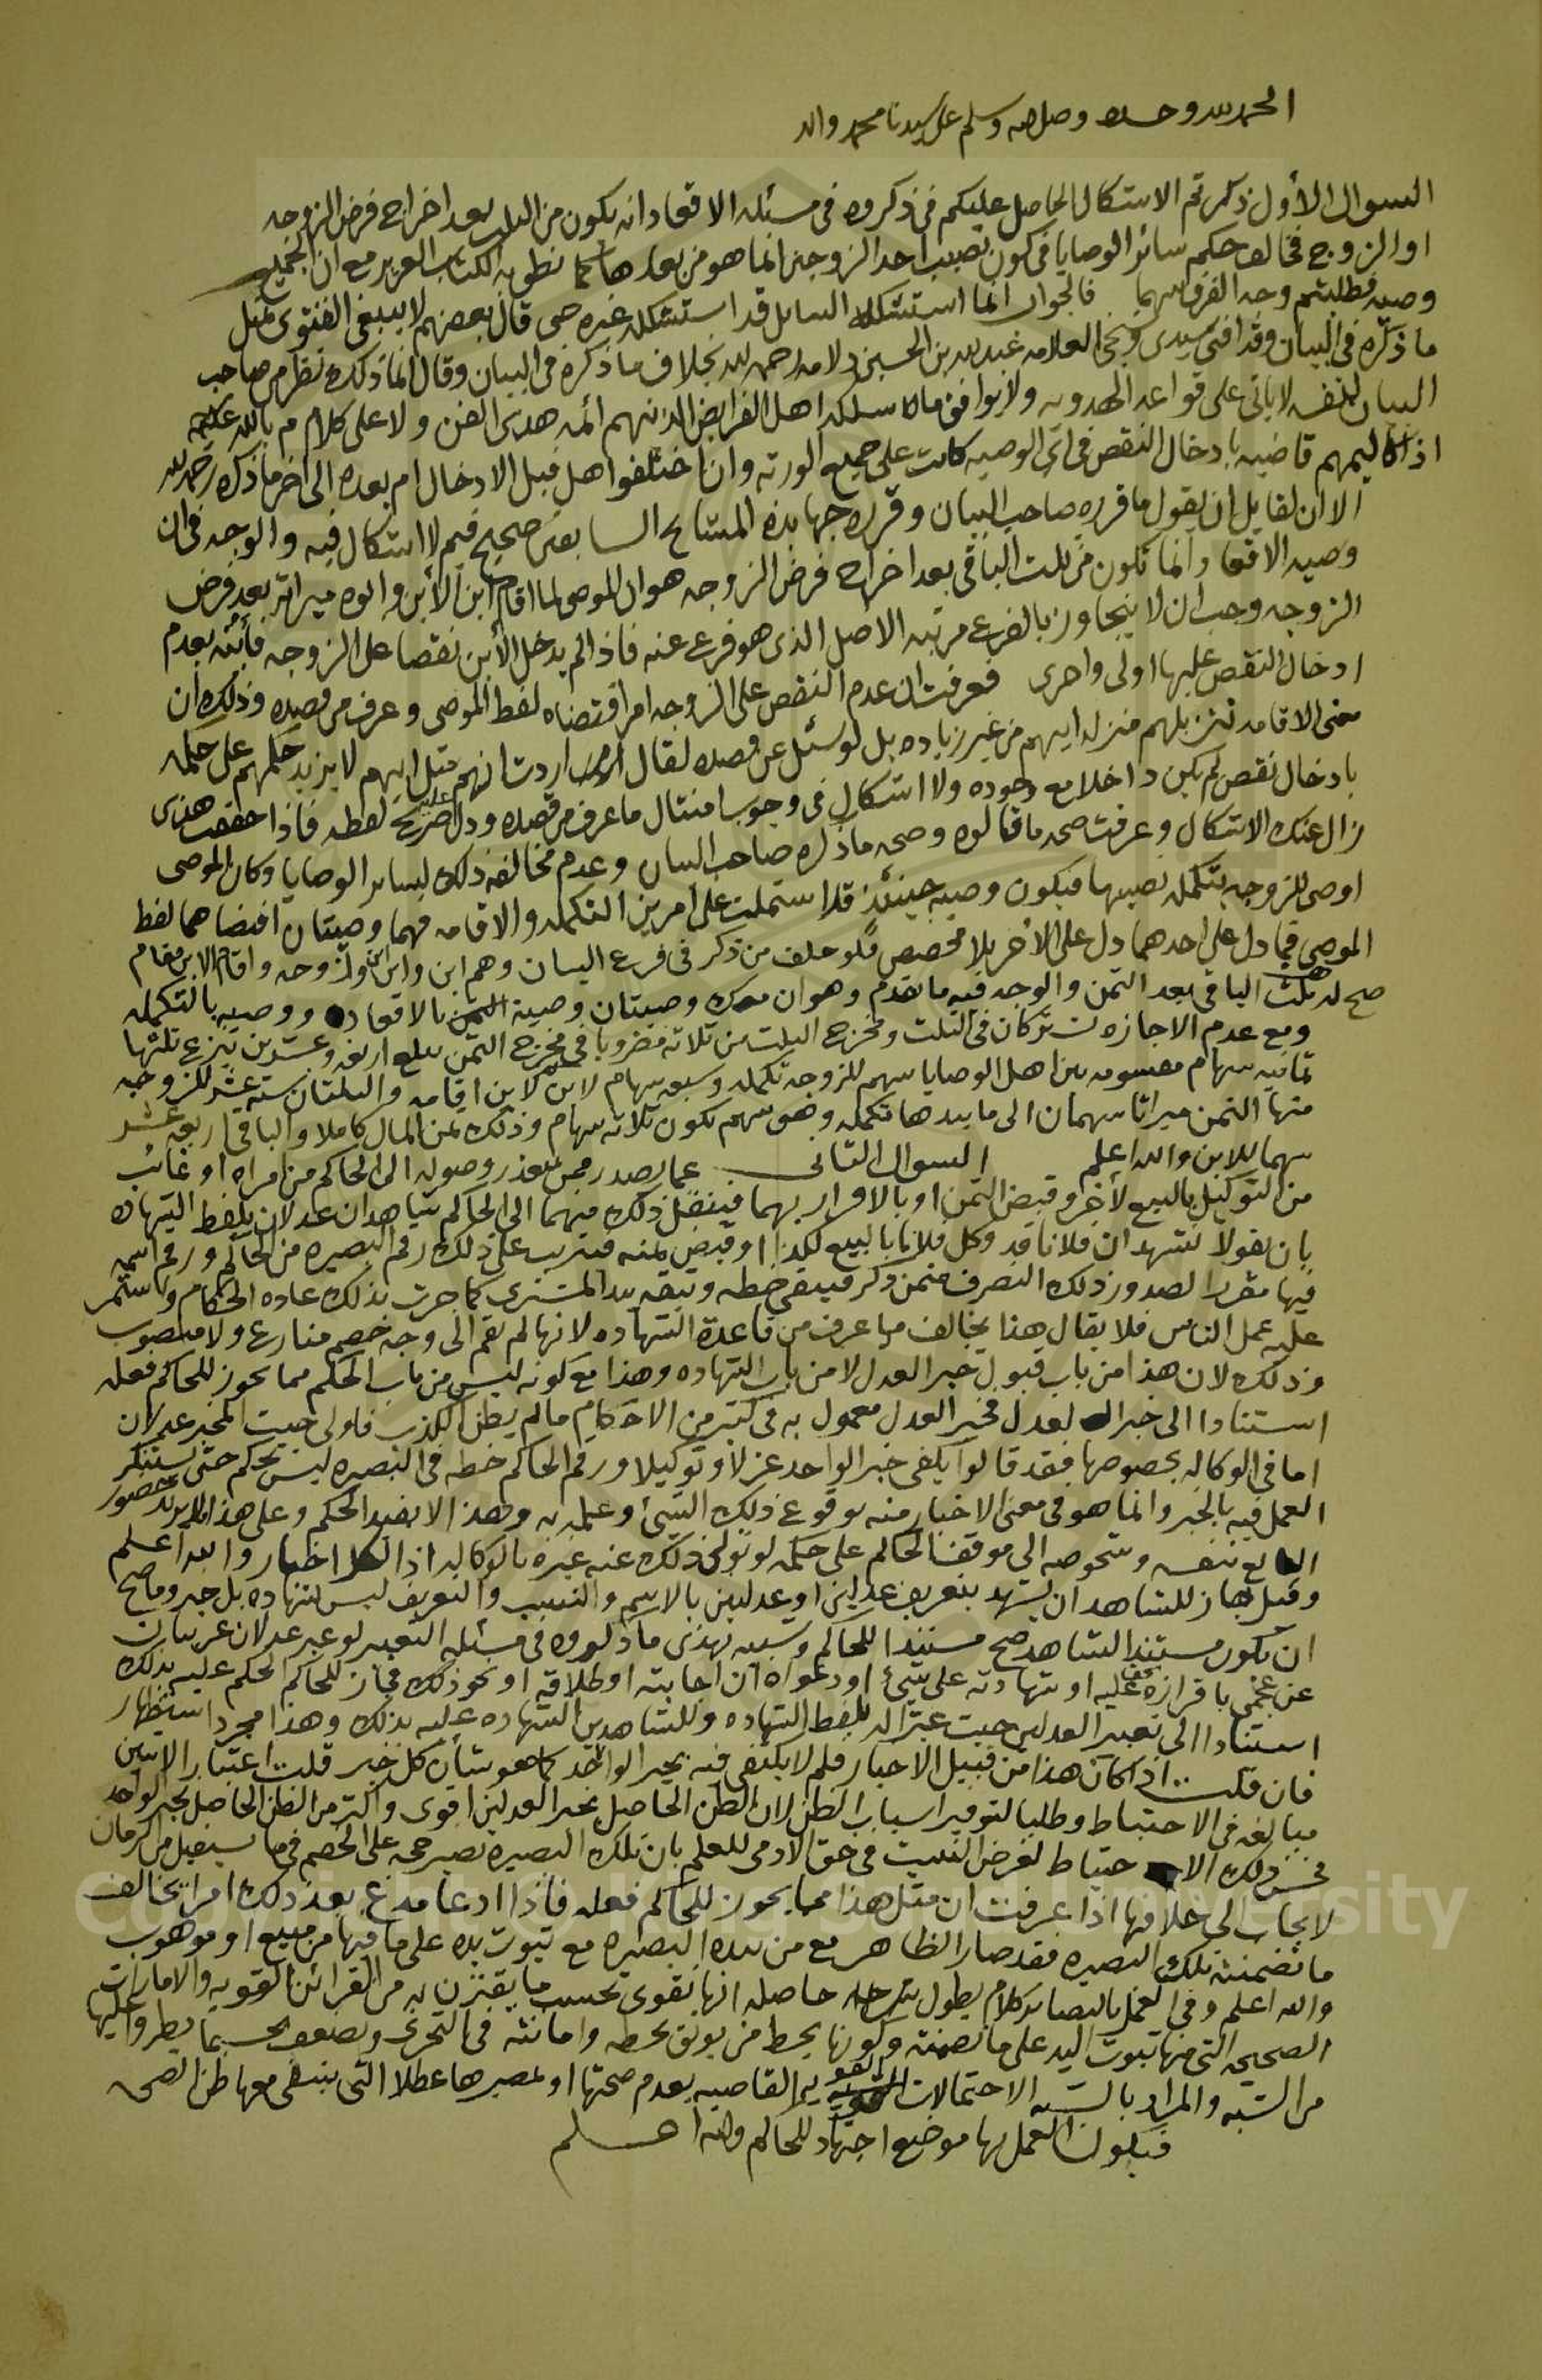 الحمد لله وحده وصلى الله وسلم على سيدنا محمد واله
السوال الأول ذكرتم الاشكال الحاصل عليكم في ذكروه في مسئله الاقعاد انه يكون من الثلث بعد اخراج فرض الزوجه
او الزوج فخالف حكم سائر الوصايا في كون نصيب احد الزوجين انما هو من بعدها كما نطق به الكتاب العزيز مع ان الجميع
وصيه فطلبتم وجه الفرق بينهما فالجواب انما استشكله السائل قد استشكله غيره حتى قال بعضهم لا ينبغي الفتوى بمثل
ما ذكره في البيان وقد افتى سيدي وشيخي العلامه عبد الله بن الحسين دلامه رحمه الله بخلاف ما ذكره في البيان وقال انما ذلك نظر من صاحب
البيان لنفسه لا ياتي على قواعد الهدويه ولا يوافق ما سلكه اهل الفرايض الذين هم ائمه هذى الفن ولا على كلام م بالله عليه
اذ كلهم قاضيه بادخال النقص في اي الوصيه كانت على جميع الورثه وان اختلفوا هل قبل الادخال ام بعده الى اخر ما ذكره رحمه الله
الا ان لقايل ان يقول ما قرره صاحب البيان وقرره جهابذه المشايخ السابقين صحيح قيم لا اشكال فيه والوجه في ان
وصيه الاقعاد انما تكون من ثلث الباقي بعد اخراج فرض الزوجه هو ان الموصي لما اقام ابن الأبن وابوه ميراثه بعد فرض
الزوجه وجب ان لا يتجاوز بالفرع مرتبه الاصل الذي هو فرع عنه فاذا لم يدخل الأبن نقصا على الزوجه فأبنه بعدم
ادخال النقص عليها اولى واحرى فعرفت ان عدم النقص على الزوجه امر اقتضاه لفظ الموصي وعرف من قصده وذلك ان
معنى الاقامه تنزيلهم منزله ابيهم من غير زياده بل لو سئل عن قصده لقال اردت انهم مثل ابيهم لا يزيد حكمهم على حكمه
بادخال نقص لم يكن داخلا مع وجوده ولا اشكال في وجوب امتثال ما عرف من قصده ودل عليه صريح لفظه فاذا حققت هذى
زال عنك الاشكال وعرفت صحه ما قالوه وصحه ما ذكره صاحب البيان وعدم مخالفه ذلك لساير الوصايا وكان الموصي
اوصى للزوجه بتكمله نصيبها فيكون وصيه حينئذ قد اشتملت على امرين التكمله والاقامه فهما وصيتان اقتضاهما لفظ
الموصي فما دل على احدهما دل على الأخر بلا مخصص فلو خلف من ذكر في فرع البيان وهم ابن وابن ابن وزوجه واقام الابن مقام
صح له ثلث الباقي بعد الثمن والوجه فيه ما تقدم وهو ان معك وصيتان وصية بالاقعاد ووصيه بالتكمله
ومع عدم الاجازه تشتركان في الثلث ومخرج الثلث من ثلاثه مضروبا في مخرج الثمن يبلغ اربعه وعشرين ينزع ثلثها
ثمانيه سهام مقسومه بين اهل الوصايا سهم للزوجه تكمله وسبعه سهام لابن الابن اقامه والثلثان سته عشر للزوجه
منها الثمن ميراثا سهمان الى ما بيدها تكمله وهو سهم تكون ثلاثه سهام وذلك ثمن المال كاملا والباقي اربعه عشر
سهما للابن والله اعلم السوال الثاني عما يصدر ممن تعذر وصوله الى الحاكم من امراه او غائب
من التوكيل بالبيع لأخر وقبض الثمن او بالاقرار بهما فينقل ذلك فيهما الى الحاكم شاهدان عدلان بلفظ الشهاده
بان يقولا نشهد ان فلانا قد وكل فلانا بالبيع لكذا او قبض ثمنه فيترتب على ذلك رقم البصيره من الحاكم ورقم اسمه
فيها مقررا لصدور ذلك التصرف ممن ذكر فيبقى خطه وثيقه بيد المشتري كما جرت بذلك عاده الحكام واستمر
عليه عمل الناس فلا يقال هذا يخالف ما عرف من قاعدة الشهاده لانها لم تقم الى وجه خصم منازع ولا منصوب
وذلك لان هذا من باب قبول خبر العدل لا من باب الشهاده وهذا مع كونه ليس من باب الحكم مما يجوز للحاكم فعله
استنادا الى خبر العدل فخبر العدل معمول به في كثير من الاحكام ما لم يظن الكذب فاولى حيث المخبر عدلان
اما في الوكاله بخصوصها فقد قالوا يكفي خبر الواحد عزلا وتوكيلا ورقم الحاكم خطه في البصيره ليس بحكم حتى يستنكر
العمل فيه بالخبر وانما هو في معنى الاخبار منه بوقوع ذلك الشيئ وعلمه به وهذا لا يفيد الحكم وعلى هذا فلا يريد حضور
البايع بنفسه وشخوصه الى موقف الحاكم على حكمه لو تولى ذلك عنه غيره بالوكاله اذ الكل اخبار والله اعلم
وقيل يجاز للشاهد ان يشهد بتعريف عدلين او عدلتين بالاسم والنسب والتعريف ليس شهاده بل خبر وما صح
ان يكون مستند الشاهد صح مستندا للحاكم وشبيه بهذى ما ذكروه في مسئله التعبير لو عبر عدلان عربيان
عن عجمي باقراره بحق عليه او شهادته على شيئ او دعواه ان اجابته او طلاقه او نحو ذلك فجاز للحاكم الحكم عليه بذلك
استنادا الى تعبير العدلين حيث عبرا له بلفظ الشهاده وللشاهدين الشهاده عليه بذلك وهذا مجرد استظهار
فان قلت اذا كان هذا من قبيل الاخبار فلم لا يكتفى فيه بخبر الواحد كما هو شأن كل خبر قلت اعتبار الاثنين
مبالغه في الاحتياط وطلبا لتوفير اسباب الظن لان الظن الحاصل بخبر العدلين اقوى واكثر من الظن الحاصل بخبر الواحد
فحسن ذلك الاحتياط لغرض التثبت في حق الادمي للعلم بان تلك البصيره تصير حجه على الخصم فيما يستقبل من الزمان
لا يجاب الى خلافها اذا عرفت ان مثل هذا مما يجوز للحاكم فعله فاذا ادعا مدع بعد ذلك امرا يخالف
ما تضمنته تلك البصيره فقد صار الظاهر مع من بيده البصيره مع ثبوت يده على ما فيها من مبيع او موهوب
والله اعلم وفي العمل بالبصائر كلام يطول شرحه حاصله انها تقوى بحسب ما يقترن به من القرائن القويه والامارات
الصحيحه التي منها ثبوت اليد على ما تضمنته وكونها بخط من يوثق بخطه وامانته في التحري وتضعف بحسب ما يطرو عليها
من الشبه والمراد بالشبه الاحتمالات القويه القاضيه بعدم صحتها او تصيرها عطلا التي ينتفي معها ظن الصحه
فيكون العمل بها موضع اجتهاد للحاكم والله اعلم